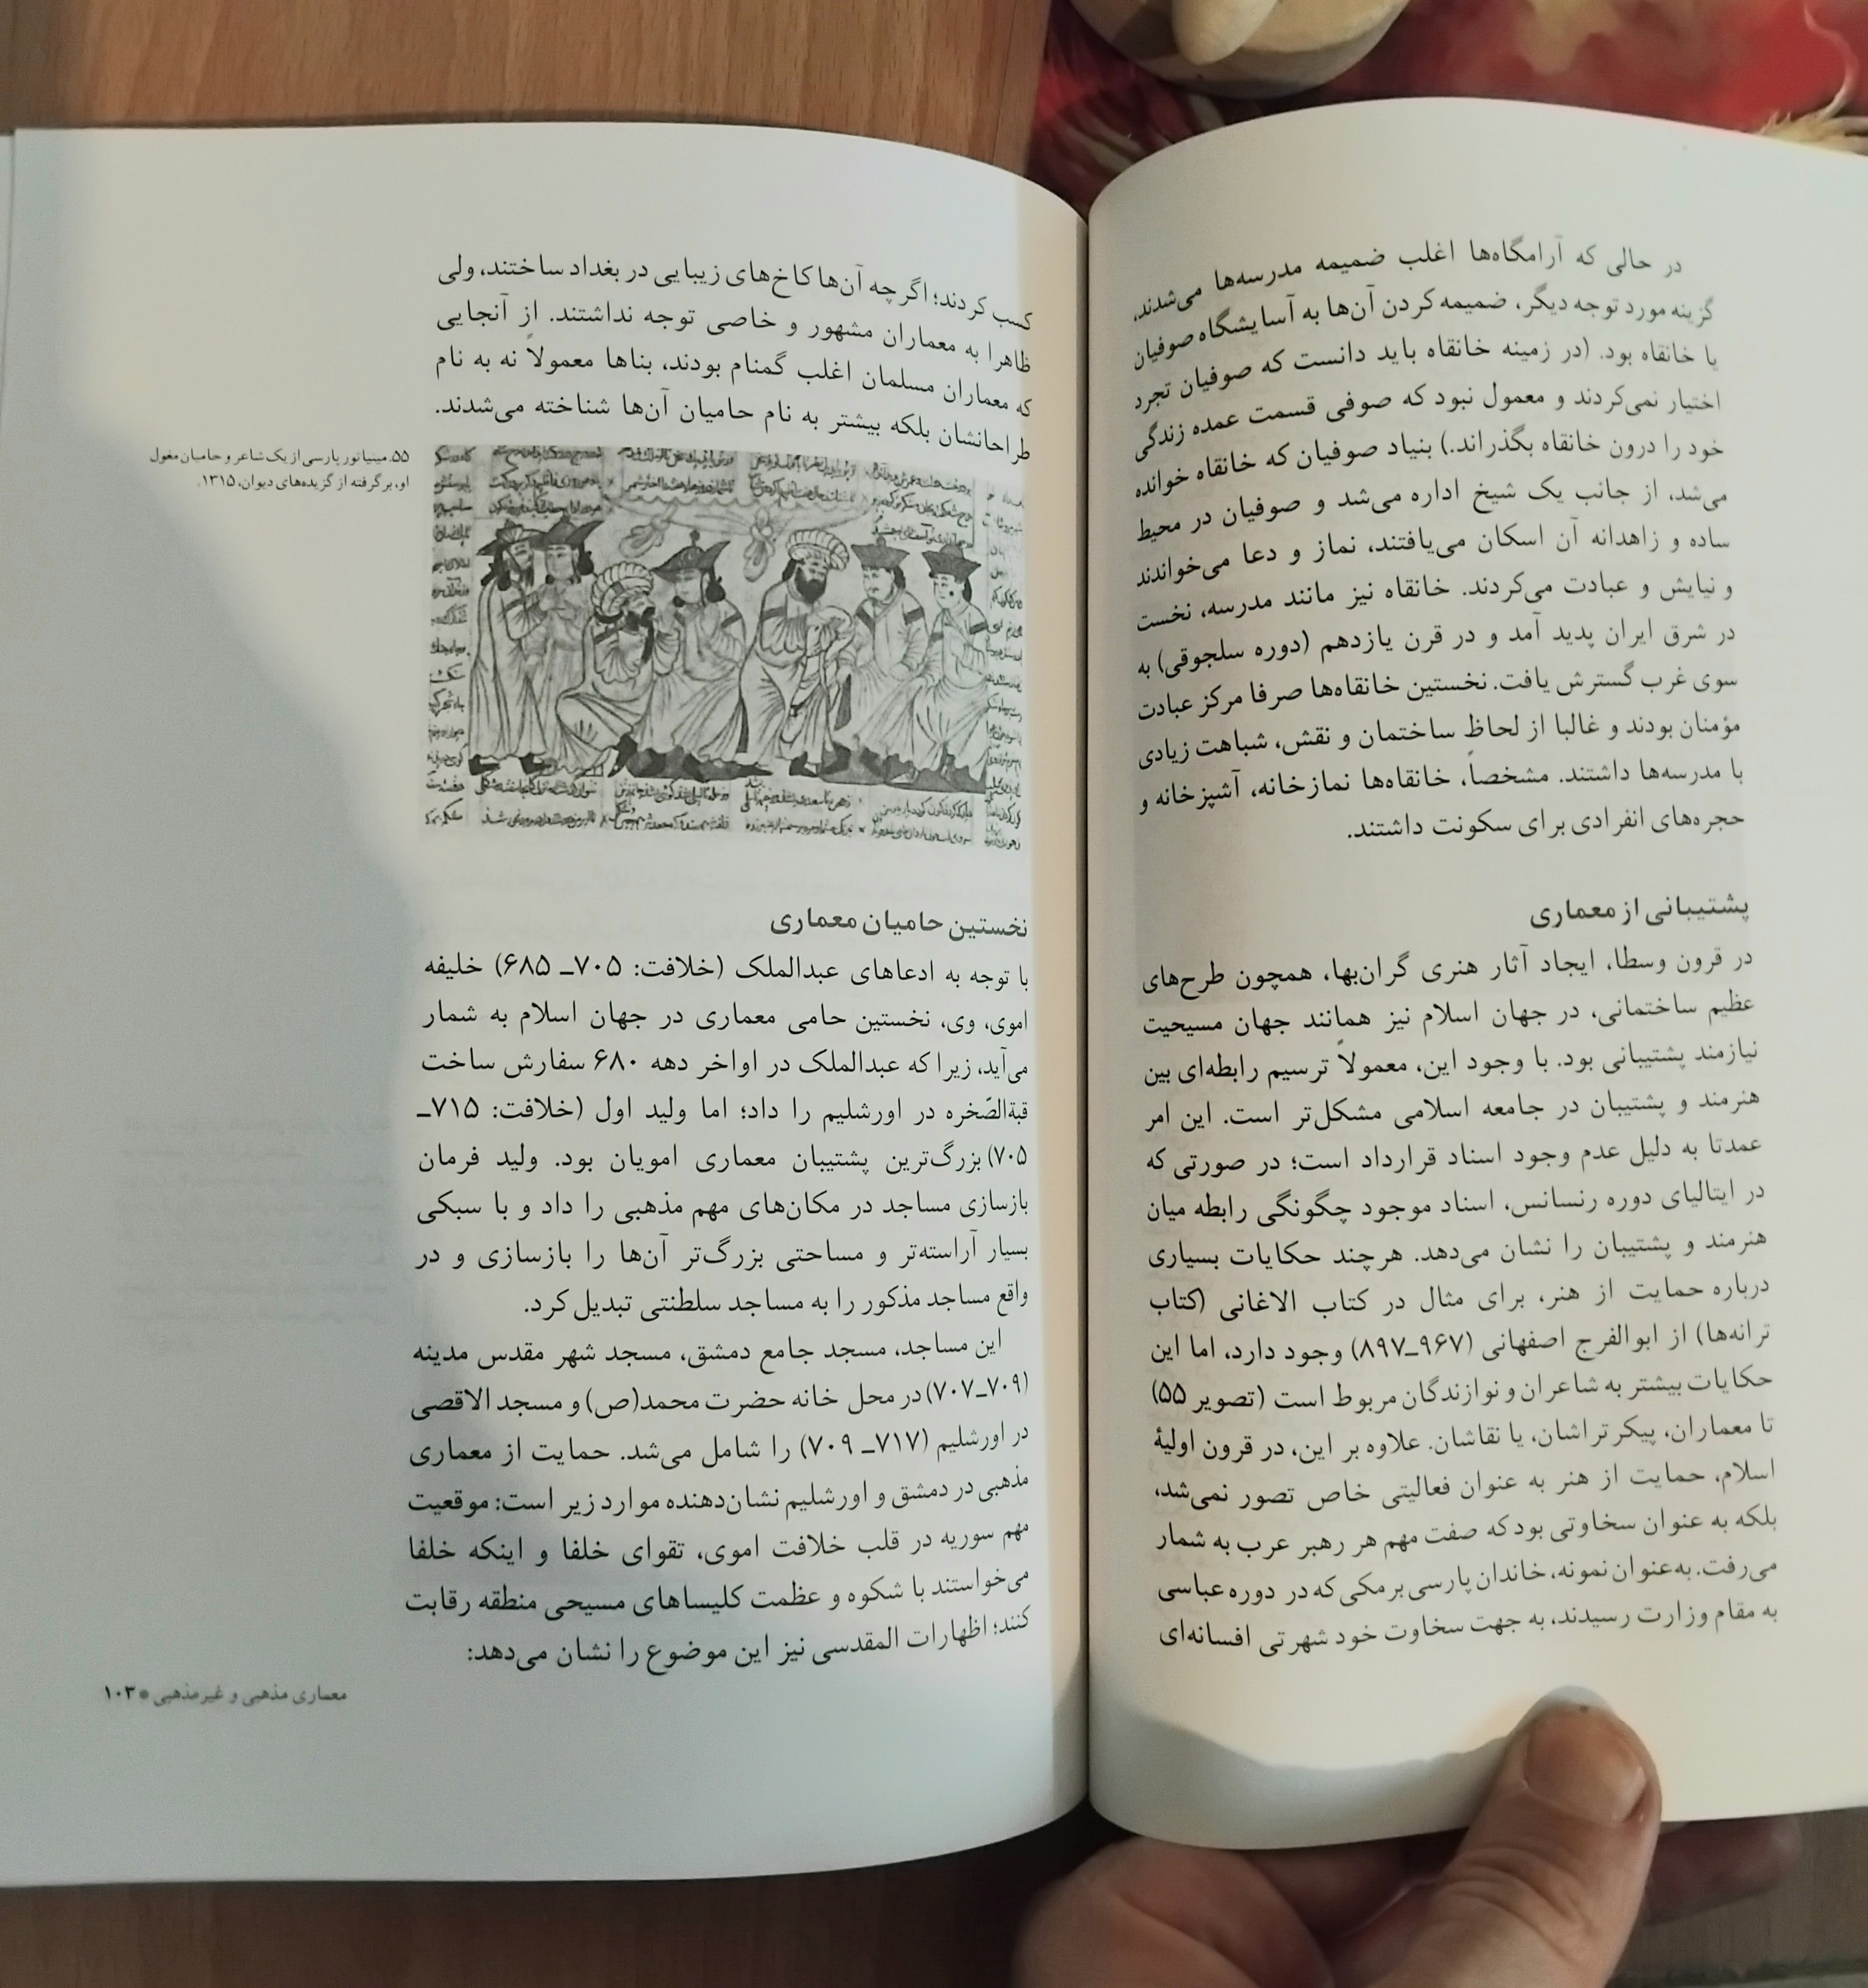 در حالی که آرامگاه‌ها اغلب ضمیمه مدرسه‌ها می‌شدند،
گزینه مورد توجه دیگر، ضمیمه کردن آن‌ها به آسایشگاه صوفیان
یا خانقاه بود. (در زمینه خانقاه باید دانست که صوفیان تجرد
اختیار نمی‌کردند و معمول نبود که صوفی قسمت عمده زندگی
خود را درون خانقاه بگذراند.) بنیاد صوفیان که خانقاه خوانده
می‌شد، از جانب یک شیخ اداره می‌شد و صوفیان در محیط
ساده و زاهدانه آن اسکان می‌یافتند، نماز و دعا می‌خواندند
و نیایش و عبادت می‌کردند. خانقاه نیز مانند مدرسه، نخست
در شرق ایران پدید آمد و در قرن یازدهم (دوره سلجوقی) به
سوی غرب گسترش یافت. نخستین خانقاه‌ها صرفا مرکز عبادت
مؤمنان بودند و غالبا از لحاظ ساختمان و نقش، شباهت زیادی
با مدرسه‌ها داشتند. مشخصاً، خانقاه‌ها نمازخانه، آشپزخانه و
حجره‌های انفرادی برای سکونت داشتند.
پشتیبانی از معماری
در قرون وسطا، ایجاد آثار هنری گران‌بها، همچون طرح‌های
عظیم ساختمانی، در جهان اسلام نیز همانند جهان مسیحیت
نیازمند پشتیبانی بود. با وجود این، معمولاً ترسیم رابطه‌ای بین
هنرمند و پشتیبان در جامعه اسلامی مشکل‌تر است. این امر
عمدتا به دلیل عدم وجود اسناد قرارداد است؛ در صورتی که
در ایتالیای دوره رنسانس، اسناد موجود چگونگی رابطه میان
هنرمند و پشتیبان را نشان می‌دهد. هرچند حکایات بسیاری
درباره حمایت از هنر، برای مثال در کتاب الاغانی (کتاب
ترانه‌ها) از ابوالفرج اصفهانی (۹۶۷ـ۸۹۷) وجود دارد، اما این
حکایات بیشتر به شاعران و نوازندگان مربوط است (تصویر ۵۵)
تا معماران، پیکرتراشان، یا نقاشان. علاوه بر این، در قرون اولیهٔ
اسلام، حمایت از هنر به عنوان فعالیتی خاص تصور نمی‌شد،
بلکه به عنوان سخاوتی بود که صفت مهم هر رهبر عرب به شمار
می‌رفت. به‌عنوان نمونه، خاندان پارسی برمکی که در دوره عباسی
به مقام وزارت رسیدند، به جهت سخاوت خود شهرتی افسانه‌ای
کسب کردند؛ اگرچه آن‌ها کاخ‌های زیبایی در بغداد ساختند، ولی
ظاهرا به معماران مشهور و خاصی توجه نداشتند. از آنجایی
که معماران مسلمان اغلب گمنام بودند، بناها معمولاً نه به نام
طراحانشان بلکه بیشتر به نام حامیان آن‌ها شناخته می‌شدند.
۵۵. مینیاتور پارسی از یک شاعر و حامیان مغول
او، برگرفته از گزیده‌های دیوان، ۱۳۱۵.
نخستین حامیان معماری
با توجه به ادعاهای عبدالملک (خلافت: ۷۰۵ـ ۶۸۵) خلیفه
اموی، وی، نخستین حامی معماری در جهان اسلام به شمار
می‌آید، زیرا که عبدالملک در اواخر دهه ۶۸۰ سفارش ساخت
قبةالصّخره در اورشلیم را داد؛ اما ولید اول (خلافت: ۷۱۵ـ
۷۰۵) بزرگ‌ترین پشتیبان معماری امویان بود. ولید فرمان
بازسازی مساجد در مکان‌های مهم مذهبی را داد و با سبکی
بسیار آراسته‌تر و مساحتی بزرگ‌تر آن‌ها را بازسازی و در
واقع مساجد مذکور را به مساجد سلطنتی تبدیل کرد.
این مساجد، مسجد جامع دمشق، مسجد شهر مقدس مدینه
(۷۰۹ـ۷۰۷) در محل خانه حضرت محمد(ص) و مسجد الاقصی
در اورشلیم (۷۱۷ـ ۷۰۹) را شامل می‌شد. حمایت از معماری
مذهبی در دمشق و اورشلیم نشان‌دهنده موارد زیر است: موقعیت
مهم سوریه در قلب خلافت اموی، تقوای خلفا و اینکه خلفا
می‌خواستند با شکوه و عظمت کلیساهای مسیحی منطقه رقابت
کنند؛ اظهارات المقدسی نیز این موضوع را نشان می‌دهد:
معماری مذهبی و غیرمذهبی • ۱۰۳